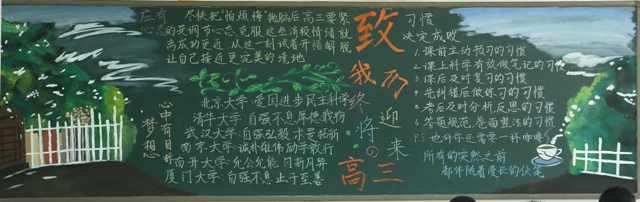 应有
心态
尽快把"怕烦悔"抛脑后高三要紧
的是调节心态克服这些消极情绪就
离成功更近 从这一刻试着开悟解脱
让自己接近更完美的境地
心中有目标
梦想
北京大学:爱国进步民主科学
清华大学:自强不息厚德载物
武汉大学:自强弘毅求是拓新
南京大学:诚朴雄伟励学敦行
南开大学:允公允能 日新月异
厦门大学:自强不息止于至善
致我们
终将迎来
の高三
习惯
决定成败
1.课前主动预习的习惯
2.课上科学有效做笔记的习惯
3.课后及时复习的习惯
4.先纠错后做练习的习惯
5.考后及时分析反思的习惯
6.答题规范,卷面整洁的习惯
P.S 也许你还需要一杯咖啡
所有的突然之前
都伴随着漫长的伏笔